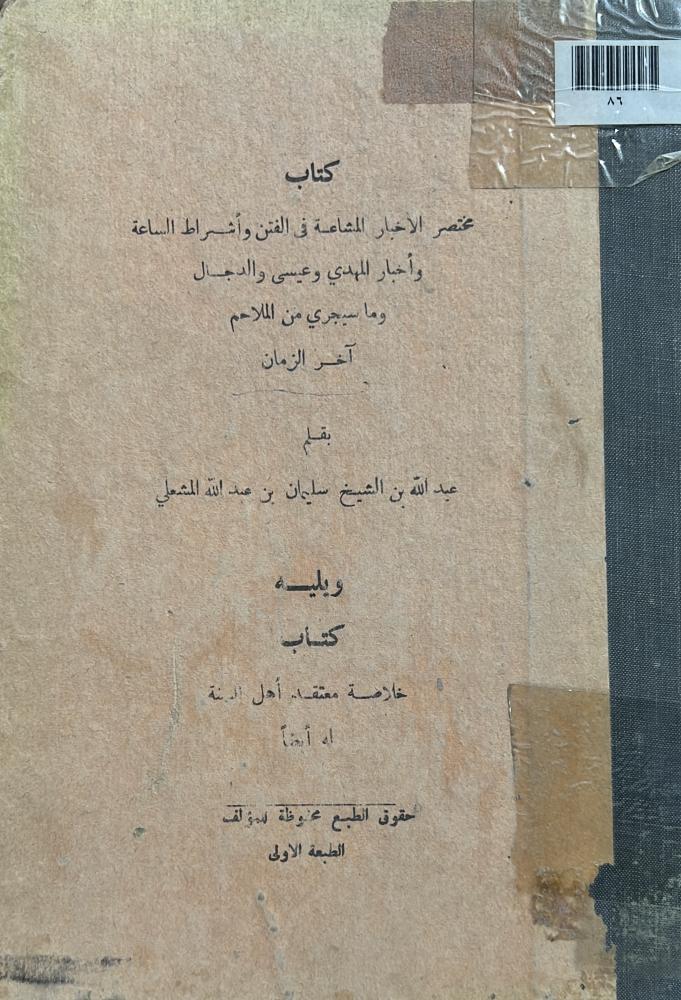 ٨٦
كتاب
مختصر الأخبار المشاعة في الفتن وأشراط الساعة
وأخبار المهدي وعيسى والدجال
وما سيجري من الملاحم
آخر الزمان
بقلم
عبد الله بن الشيخ سليمان بن عبد الله المشعلي
ويليه
كتاب
خلاصة معتقد أهل السنة
له أيضاً
حقوق الطبع محفوظة للمؤلف
الطبعة الاولى